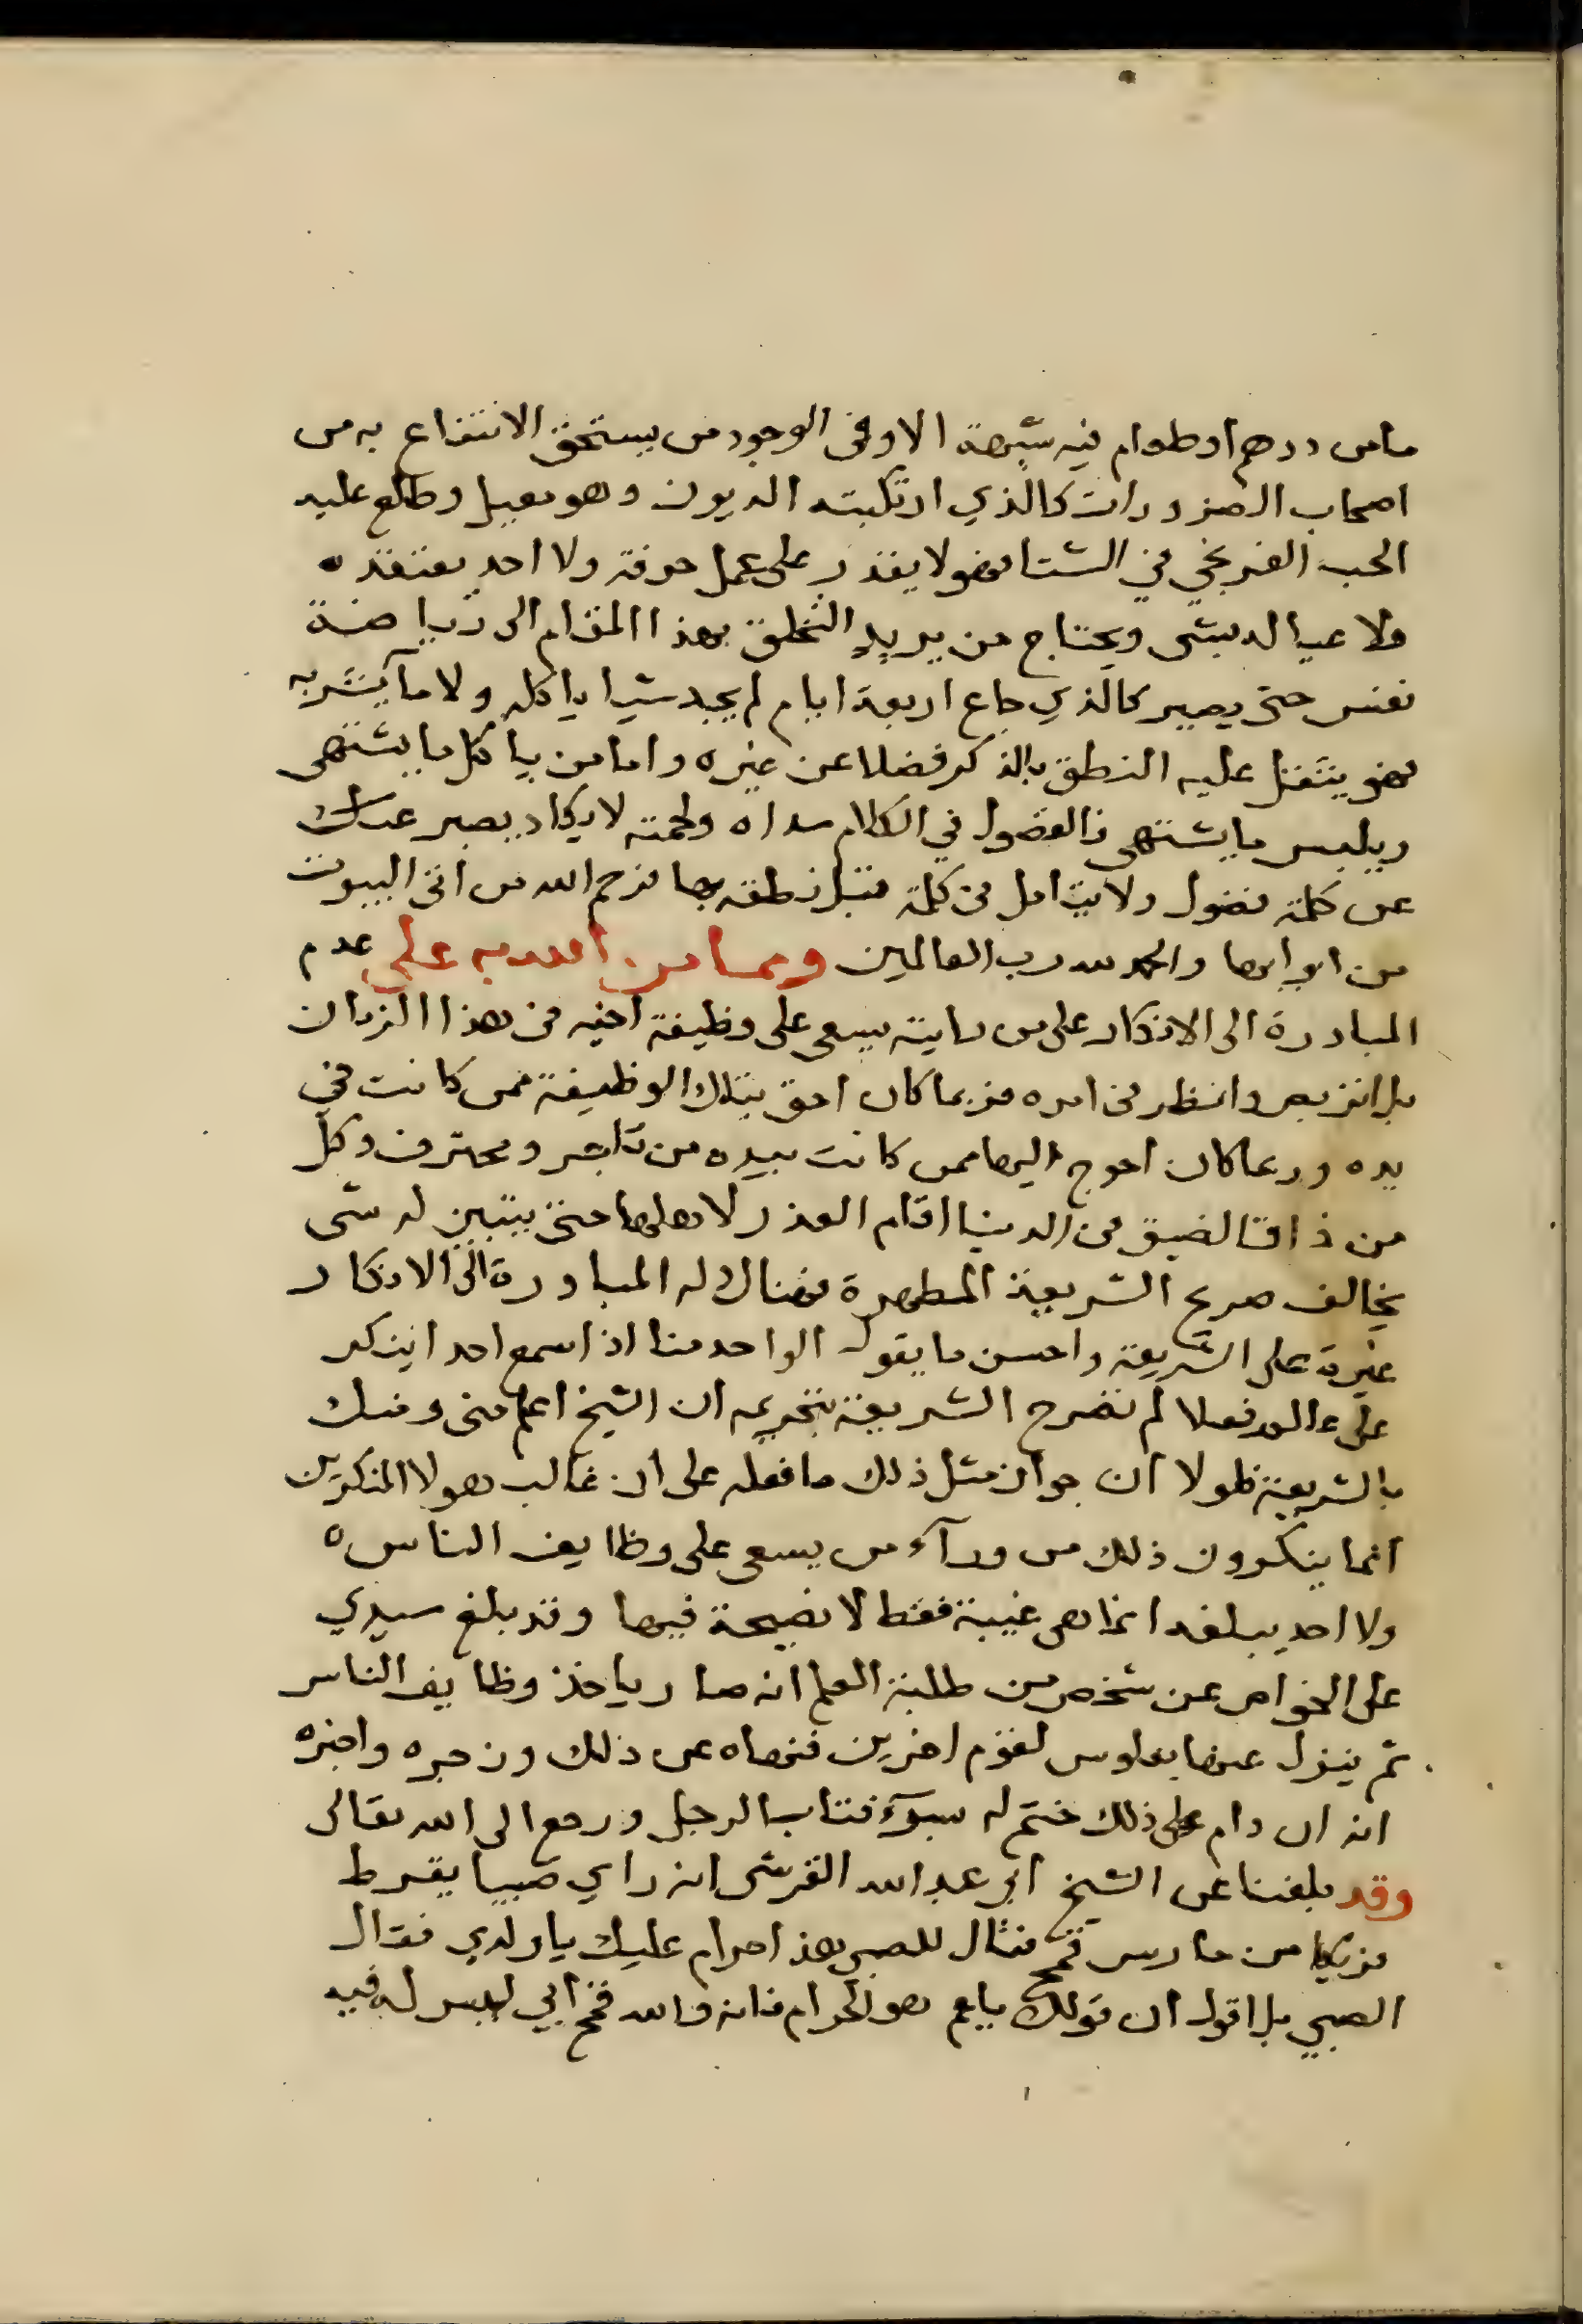 ما من درهم او طعام فيه شبهة الا وفى الوجود من يستحق الانتفاع به من
اصحاب الضرورات كالذي ارتكبته الديون وهو معيل وطلع عليه
الحب الفرنجي في الشتا فهو لا يقدر على عمل حرفة ولا احد يفتقده
ولا عياله بشى ويحتاج من يريد التخلق بهذا المقام الى رياضة
نفس حتى يصير كالذي جاع اربعة ايام لم يجد شيا ياكله ولا مآ يشربه
فهو يثقل عليه النطق بالذكر فضلا عن غيره واما من ياكل ما يشتهى
ويلبس ما يشتهى فالفضول في الكلام سداه ولحمته لا يكاد يصبر
عن كلمة فضول ولا يتامل فى كلمة قبل نطقه بها فرحم الله من اتى البيوت
من ابوابها والحمد لله رب العالمين ومما من الله به على عدم
المبادرة الى الانكار على من رايته يسعى على وظيفة اخيه فى هذا الزمان
بل اتربص وانظر فى امره فربما كان احق بتلك الوظيفة ممن كانت في
يده وربما كان احوج اليها ممن كانت بيده من تاجر ومحترف وكل
من ذاق الضيق من الدنيا اقام العذر لاهلها حتى يتبين له شى
يخالف صريح الشريعة المطهرة فهناك له المبادرة الى الانكار
غيرة على الشريعة واحسن ما يقول الواحد منا اذا سمع احدا ينكر
على عالم فعلا لم تصرح الشريعة بتحريمه ان الشيخ اعلم منى ومنك
بالشريعة فلولا ان جواز مثل ذلك ما فعله على ان غالب هولا المنكرين
انما ينكرون ذلك من ورآء من يسعى على وظايف الناس ه
ولا احد يبلغه انما هى غيبة فقط لا نصيحة فيها وقد بلغ سيدي
على الخواص عن شخص من طلبة العلم انه صار ياخذ وظايف الناس
ثم ينزل عنها بفلوس لقوم اخرين فنهاه عن ذلك وزجره واخبره
انه ان دام على ذلك ختم له بسوء فتاب الرجل ورجع الى الله تعالى
وقد بلغنا عن الشيخ ابى عبد الله القرشى انه راي صبيا يقرط
فريكا من مارس قمح فقال للصبي هذا حرام عليك يا ولدي فقال
الصبي بل اقول ان قولك يا عم هو الحرام فانه والله قمح ابي ليس له فيه